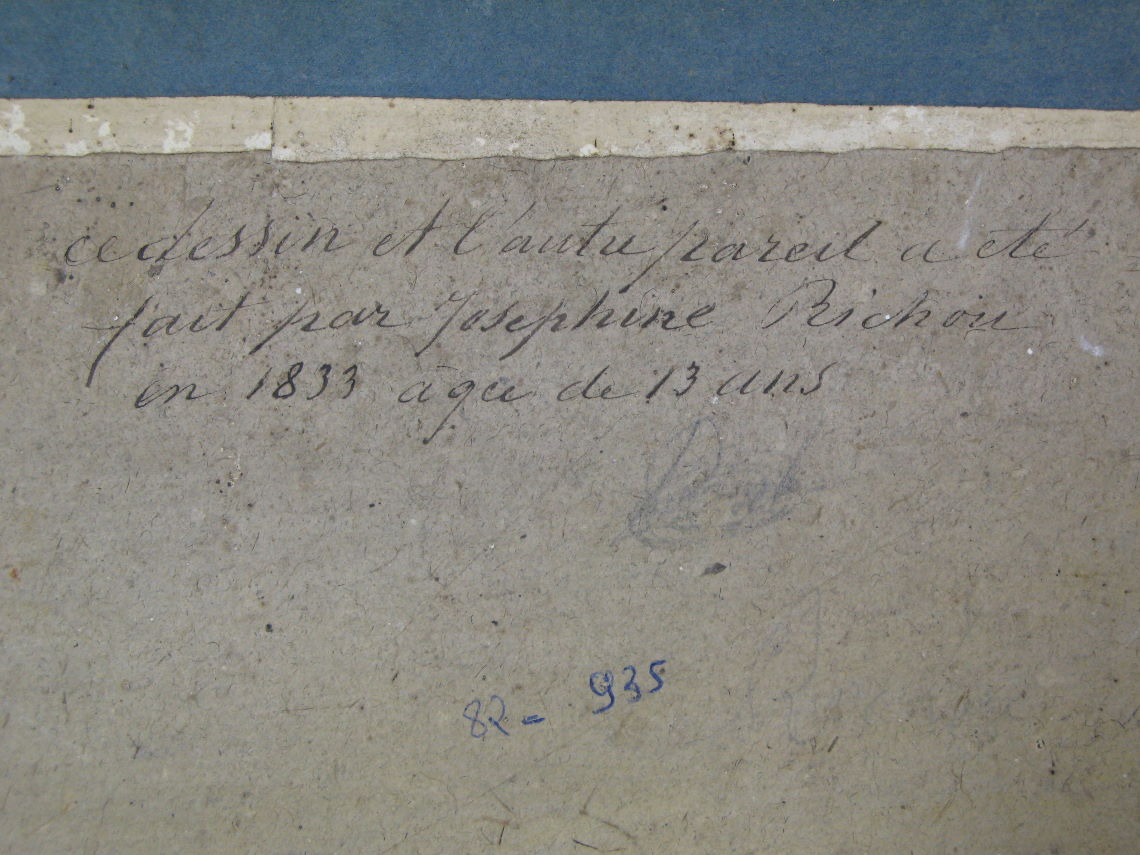 ce dessin et l'autre pareil a été
fait par Josephine Richou
en 1833 âgée de 13 ans
82 - 935